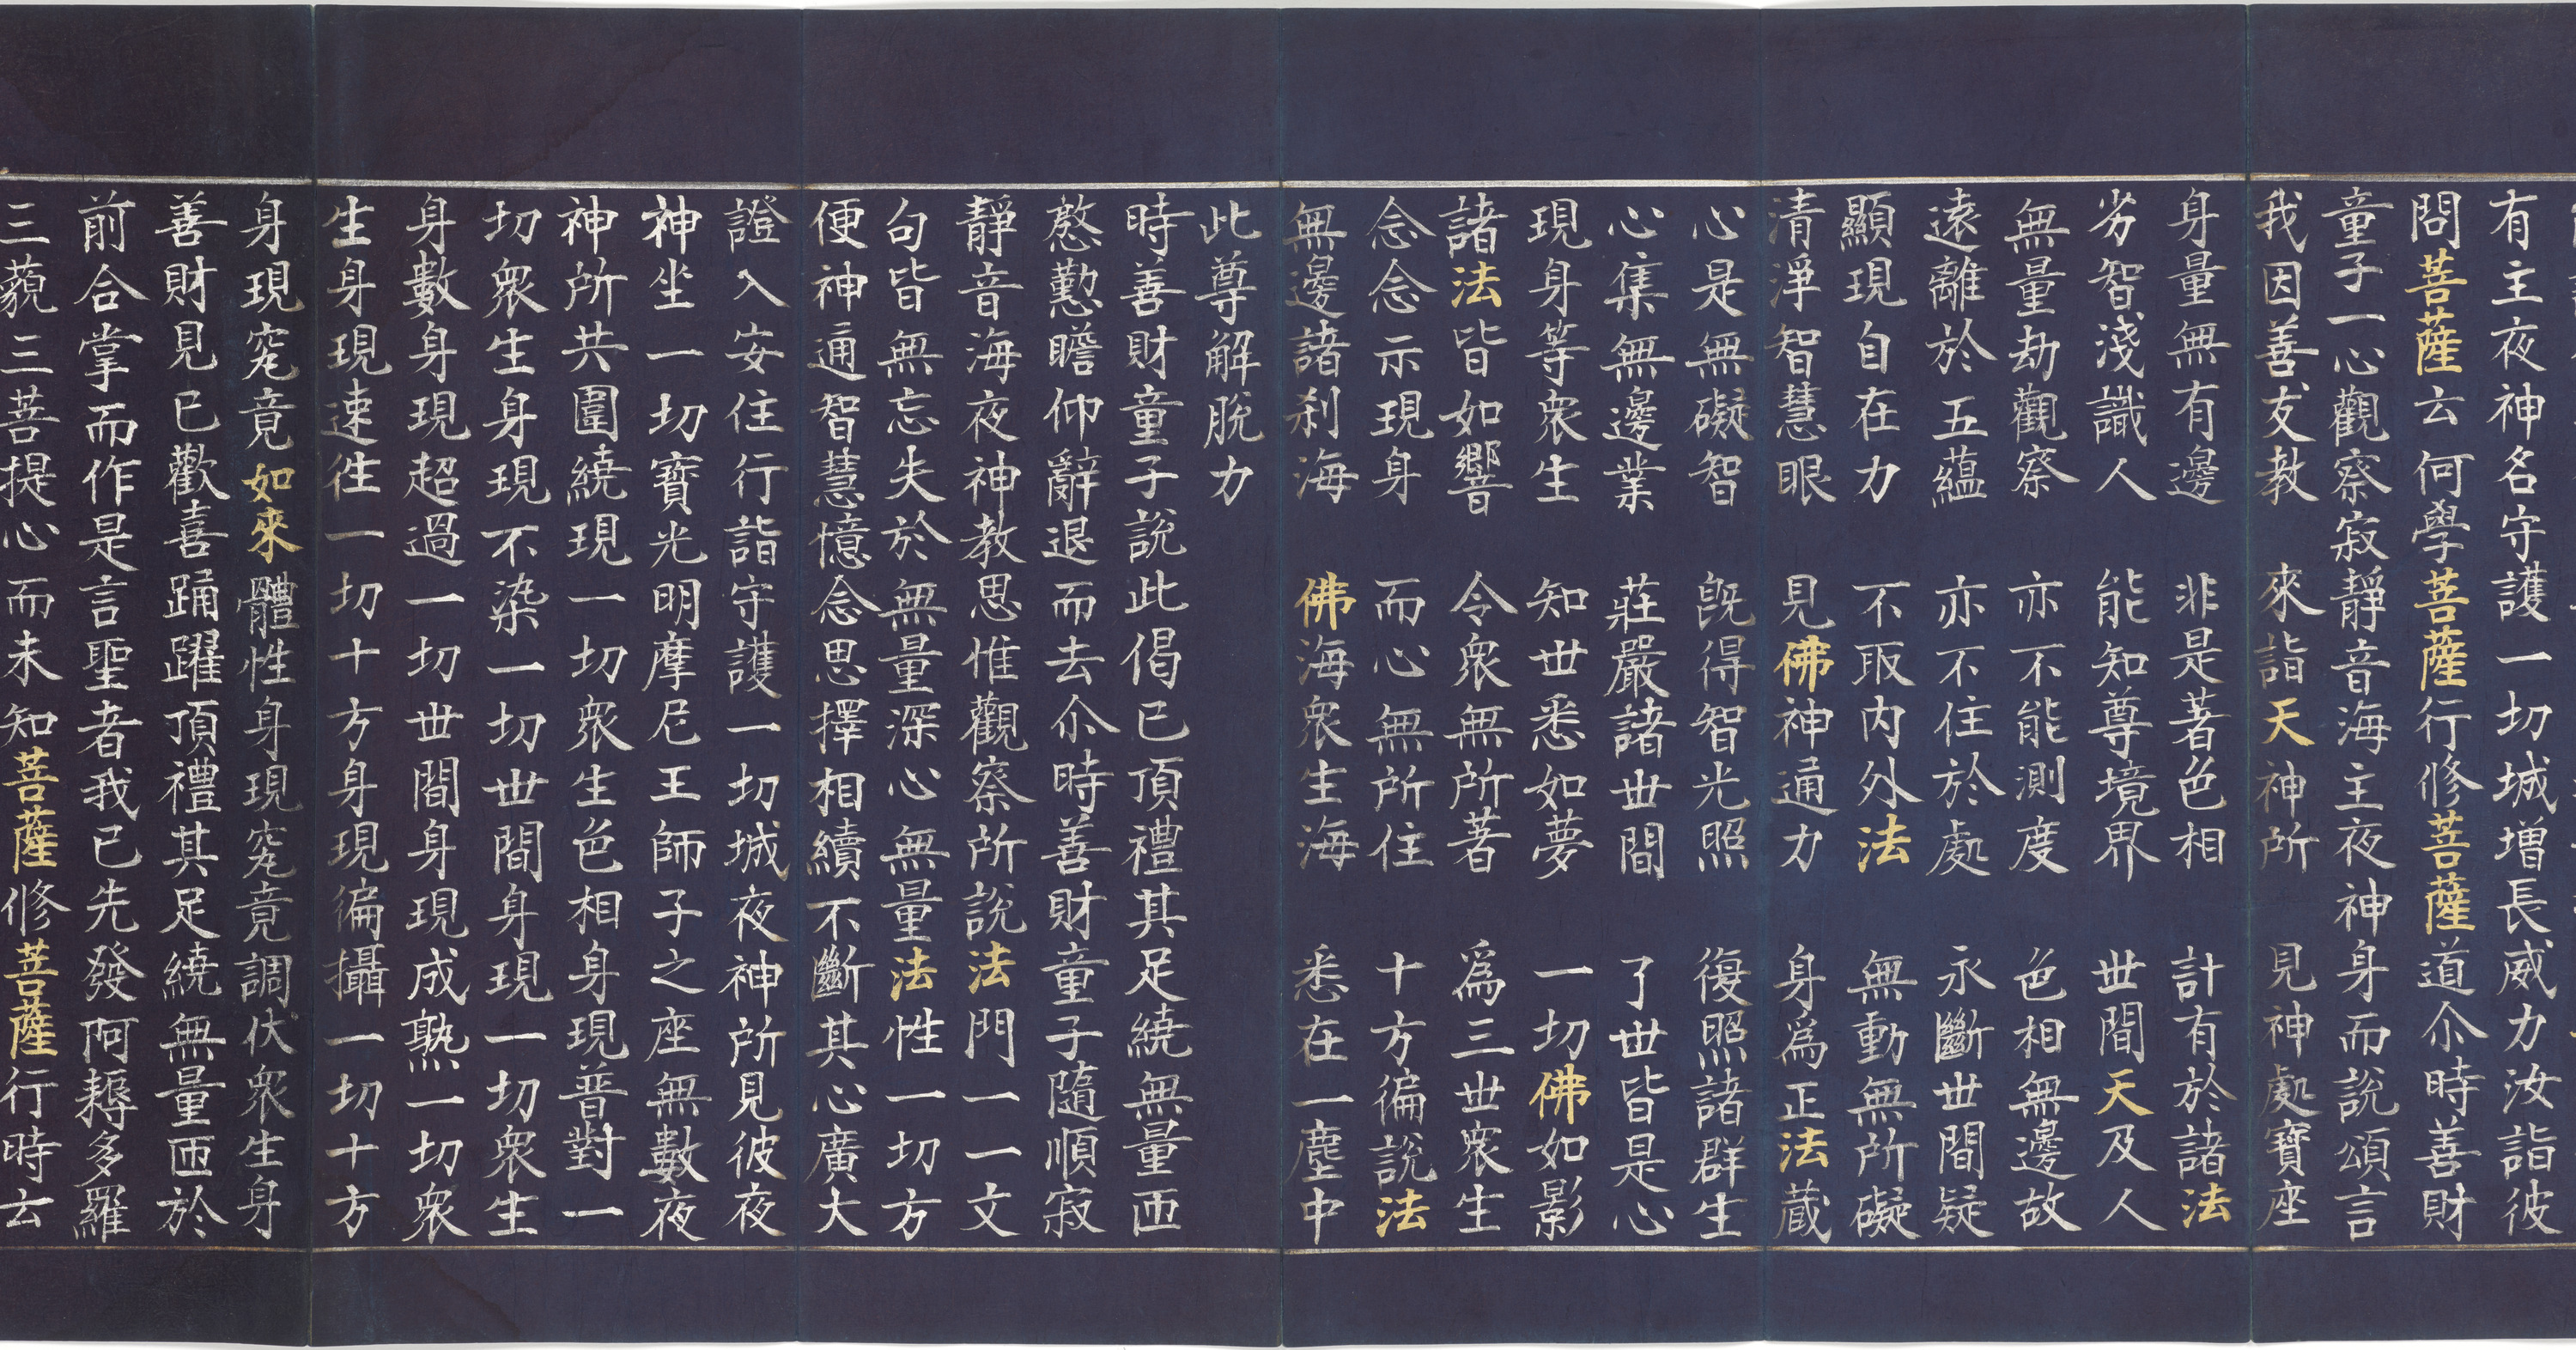 有主夜神名守護一切城增長威力汝詣彼
問菩薩云何學菩薩行修菩薩道尒時善財
童子一心觀察寂靜音海主夜神身而說頌言
我因善友教 來詣天神所 見神處寶座
身量無有邊 非是著色相 計有於諸法
劣智淺識人 能知尊境界 世間天及人
無量劫觀察 亦不能測度 色相無邊故
遠離於五蘊 亦不住於處 永斷世間疑
顯現自在力 不取内外法 無動無所礙
清淨智慧眼 見佛神通力 身為正法藏
心是無礙智 旣得智光照 復照諸群生
心集無邊業 莊嚴諸世間 了世皆是心
現身等衆生 知世悉如夢 一切佛如影
諸法皆如響 令衆無所著 為三世衆生
念念示現身 而心無所住 十方徧說法
無邊諸刹海 佛海衆生海 悉在一塵中
此尊解脫力
時善財童子說此偈已頂禮其足繞無量匝
慇懃瞻仰辭退而去尒時善財童子隨順寂
靜音海夜神教思惟觀察所說法門一一文
句皆無忘失於無量深心無量法性一切方
便神通智慧憶念思擇相續不斷其心廣大
證入安住行詣守護一切城夜神所見彼夜
神坐一切寶光明摩尼王師子之座無數夜
神所共圍繞現一切衆生色相身現普對一
切衆生身現不染一切世間身現一切衆生
身數身現超過一切世間身現成熟一切衆
生身現速徃一切十方身現徧攝一切十方
身現究竟如來體性身現究竟調伏衆生身
善財見已歡喜踊躍頂禮其足繞無量匝於
前合掌而作是言聖者我已先發阿耨多羅
三藐三菩提心而未知菩薩修菩薩行時云